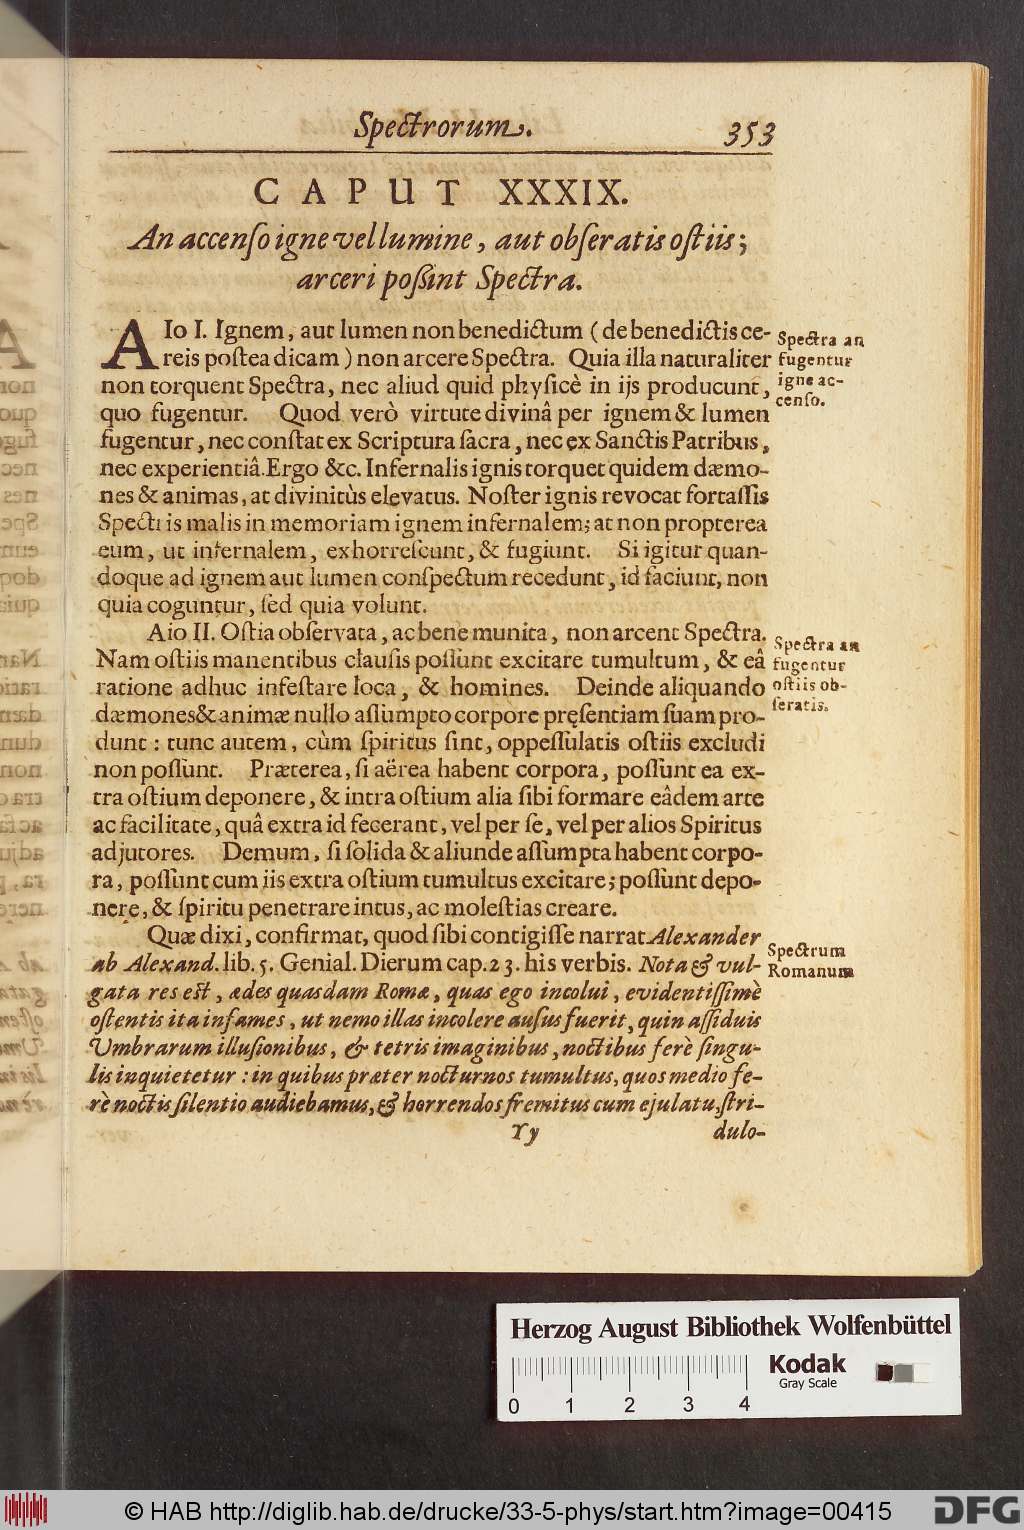 Spectrorum. 353
CAPUT XXXIX.
An accenso igne vel lumine, aut obseratis ostiis;
arceri possint Spectra.
AIo I. Ignem, aut lumen non benedictum (de benedictis ce-
reis postea dicam) non arcere Spectra. Quia illa naturaliter
non torquent Spectra, nec aliud quid physicè in ijs producunt,
quo fugentur. Quod verò virtute divinâ per ignem & lumen
fugentur, nec constat ex Scriptura sacra, nec ęx Sanctis Patribus,
nec experientiâ. Ergo &c. Infernalis ignis torquet quidem dæmo-
nes & animas, at divinitùs elevatus. Noster ignis revocat fortassis
Spectris malis in memoriam ignem infernalem; at non propterea
eum, ut infernalem, exhorrescunt, & fugiunt. Si igitur quan-
doque ad ignem aut lumen conspectum recedunt, id faciunt, non
quia coguntur, sed quia volunt.
Spectra an
fugentur
igne ac-
censo.
Aio II. Ostia observata, ac bene munita, non arcent Spectra.
Nam ostiis manentibus clausis possunt excitare tumultum, & eâ
ratione adhuc infestare loca, & homines. Deinde aliquando
dæmones & animæ nullo assumpto corpore pręsentiam suam pro-
dunt: tunc autem, cùm spiritus sint, oppessulatis ostiis excludi
non possunt. Præterea, si aërea habent corpora, possunt ea ex-
tra ostium deponere, & intra ostium alia sibi formare eâdem arte
ac facilitate, quâ extra id fecerant, vel per se, vel per alios Spiritus
adjutores. Demum, si solida & aliunde assumpta habent corpo-
ra, possunt cum iis extra ostium tumultus excitare; possunt depo-
nere, & spiritu penetrare intus, ac molestias creare.
Spectra an
fugentur
ostiis ob-
seratis.
Quæ dixi, confirmat, quod sibi contigisse narrat Alexander
ab Alexand. lib. 5. Genial. Dierum cap. 23. his verbis. Nota & vul-
gata res est, ædes quasdam Romæ, quas ego incolui, evidentissimè
ostentis ita infames, ut nemo illas incolere ausus fuerit, quin assiduis
Umbrarum illusionibus, & tetris imaginibus, noctibus ferè singu-
lis inquietetur: in quibus præter nocturnos tumultus, quos medio fe-
rè noctis silentio audiebamus, & horrendos fremitus cum ejulatu, stri-
Spectrum
Romanum
Yy dulo-
Herzog August Bibliothek Wolfenbüttel
Kodak
Gray Scale
0 1 2 3 4
© HAB http://diglib.hab.de/drucke/33-5-phys/start.htm?image=00415
DFG